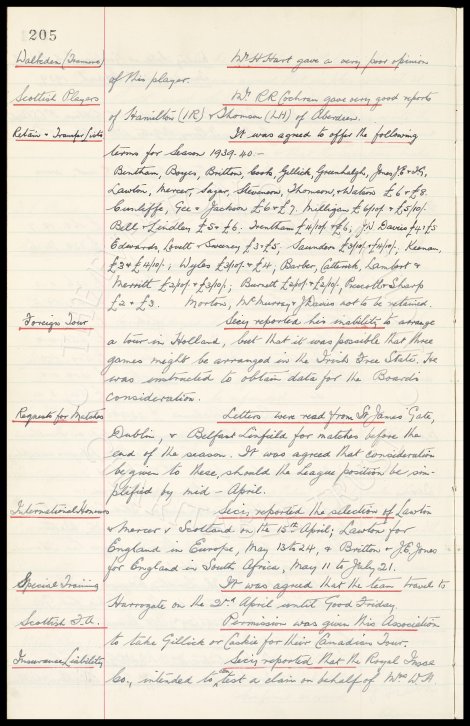 205
Walkden (Tranmere) Mr. H. Hart gave a very poor opinion
of this player.
Scottish Players Mr. R.R. Cochran gave very good reports
of Hamilton (IR) & Thomson (LH) of Aberdeen.
Retain & Transfer Lists It was agreed to offer the following
terms for Season 1939-40 :-
Bentham, Boyes, Britton, Cook, Gillick, Greenhalgh, Jones J.E. & T.G,
Lawton, Mercer, Sagar, Stevenson, Thomson & Watson £6 & £8.
Cunliffe, Gee & Jackson £6 & £7. Milligan £6/10/- & £5/10/-
Bell & Lindley £5 & £6. Trentham £4/10/- & £6; J.W. Davies £4 : £5
Edwards, Lovett & Sweeney £3 : £5, Saunders £3/10/- & £4/10/-, Keenan,
£3 & £4/10/-; Wyles £3/10/- & £4, Barber, Catterick, Lambert &
Merritt £2/10/- & £3/10/-; Burnett £2/10/- & £2/10/- Prescott & Sharp
£2 & £3. Morton, McMurray & J. Davies not to be retained.
Foreign Tour Secy. reported his inability to arrange
a tour in Holland, but that it was possible that three
games might be arranged in the Irish Free State. He
was instructed to obtain data for the Board's
consideration.
Requests for Matches Letters were read from St. James Gate,
Dublin, & Belfast Linfield for matches before the
end of the season. It was agreed that consideration
be given to these, should the League position be sim-
plified by mid-April.
International Honours Secy. reported the selection of Lawton
& Mercer v Scotland on the 15th April; Lawton for
England in Europe, May 13 to 24, & Britton & J.E. Jones
for England in South Africa, May 11 to July 21.
Special Training It was agreed that the team travel to
Harrogate on the 2nd April until Good Friday.
Scottish F.A. Permission was given this Association
to take Gillick or Caskie for their Canadian Tour.
Insurance Liability Secy. reported that the Royal Insce
Co., intended to test a claim on behalf of Mrs. W.H.